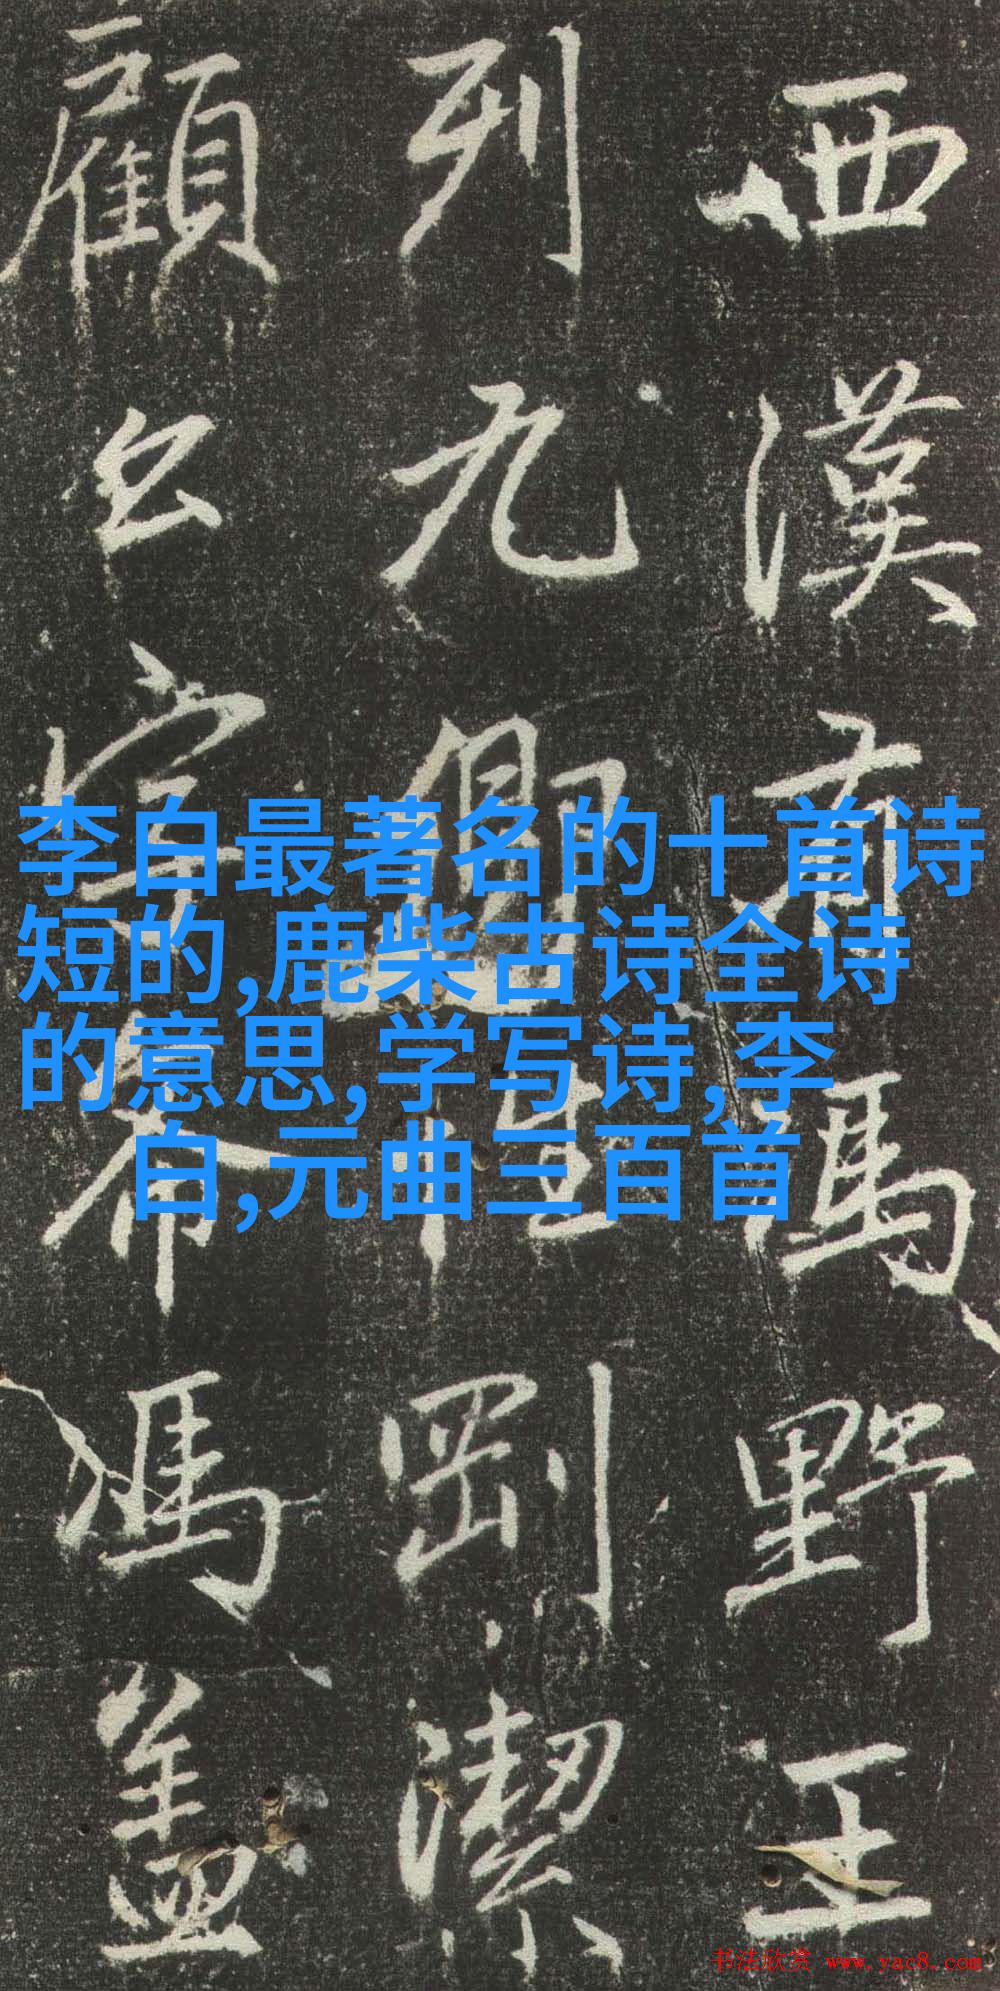 西漢有馮野王
列九卿性剛潔
顧公希馮盖
李白最著名的十首诗
短的,鹿柴古诗全诗
的意思,学写诗,李
白,元曲三百首
书法欣赏 www.yac8.com